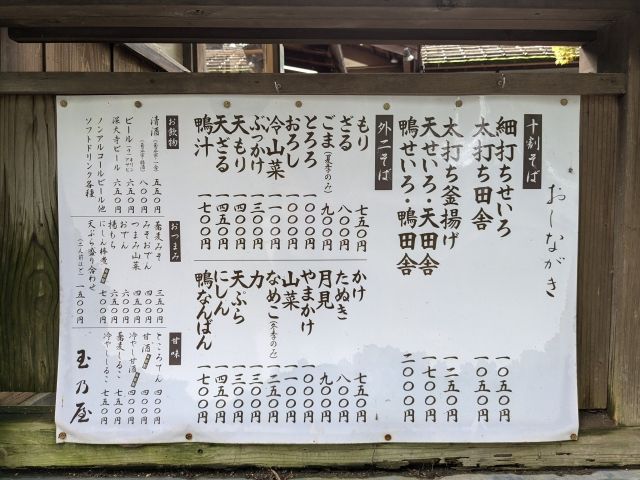 おしながき
十割そば
細打ちせいろ 一〇五〇円
太打ち田舎 一〇五〇円
太打ち釜揚げ 一二五〇円
天せいろ・天田舎 一七〇〇円
鴨せいろ・鴨田舎 二〇〇〇円
外二そば
もり 七五〇円
ざる 八〇〇円
ごま(夏季のみ) 九〇〇円
とろろ 一〇〇〇円
おろし 一〇〇〇円
冷山菜 一一〇〇円
ぶっかけ 一三〇〇円
天もり 一四五〇円
天ざる 一五〇〇円
鴨汁 一七〇〇円
かけ 七五〇円
たぬき 八〇〇円
月見 九〇〇円
やまかけ 一〇〇〇円
山菜 一一〇〇円
なめこ(冬季のみ) 一二五〇円
力 一三〇〇円
天ぷら 一四五〇円
にしん 一五〇〇円
鴨なんばん 一七〇〇円
お飲物
清酒 五五〇円
八〇〇円
ビール 六五〇円
深大寺ビール 六五〇円
ノンアルコールビール他
ソフトドリンク各種
おつまみ
蕎麦みそ 三五〇円
みそおでん 四〇〇円
つまみ山菜 四五〇円
おでん 六〇〇円
揚もち 六〇〇円
にしん棒煮 七〇〇円
天ぷら盛り合わせ 一五〇〇円
(二人前ほど)
甘味
ところてん 四〇〇円
甘酒 四〇〇円
冷やし甘酒 四〇〇円
蕎麦しるこ 七五〇円
冷やししるこ 七五〇円
玉乃屋